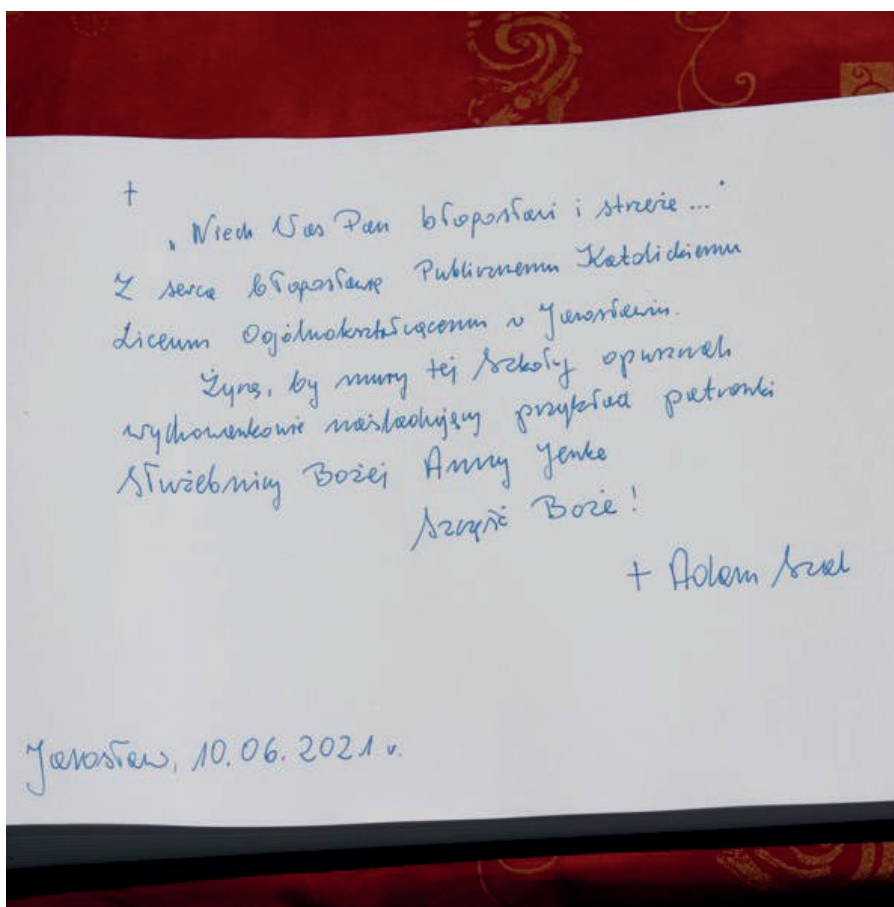 †
„Niech Was Pan błogosławi i strzeże..."
Z serca błogosławię Publicznemu Katolickiemu
Liceum Ogólnokształcącemu w Jarosławiu.
Życzę, by mury tej Szkoły opuszczali
wychowankowie naśladujący przykład patronki
Służebnicy Bożej Anny Jenke
Szczęść Boże!
+ Adam Szal
Jarosław, 10.06.2021 r.